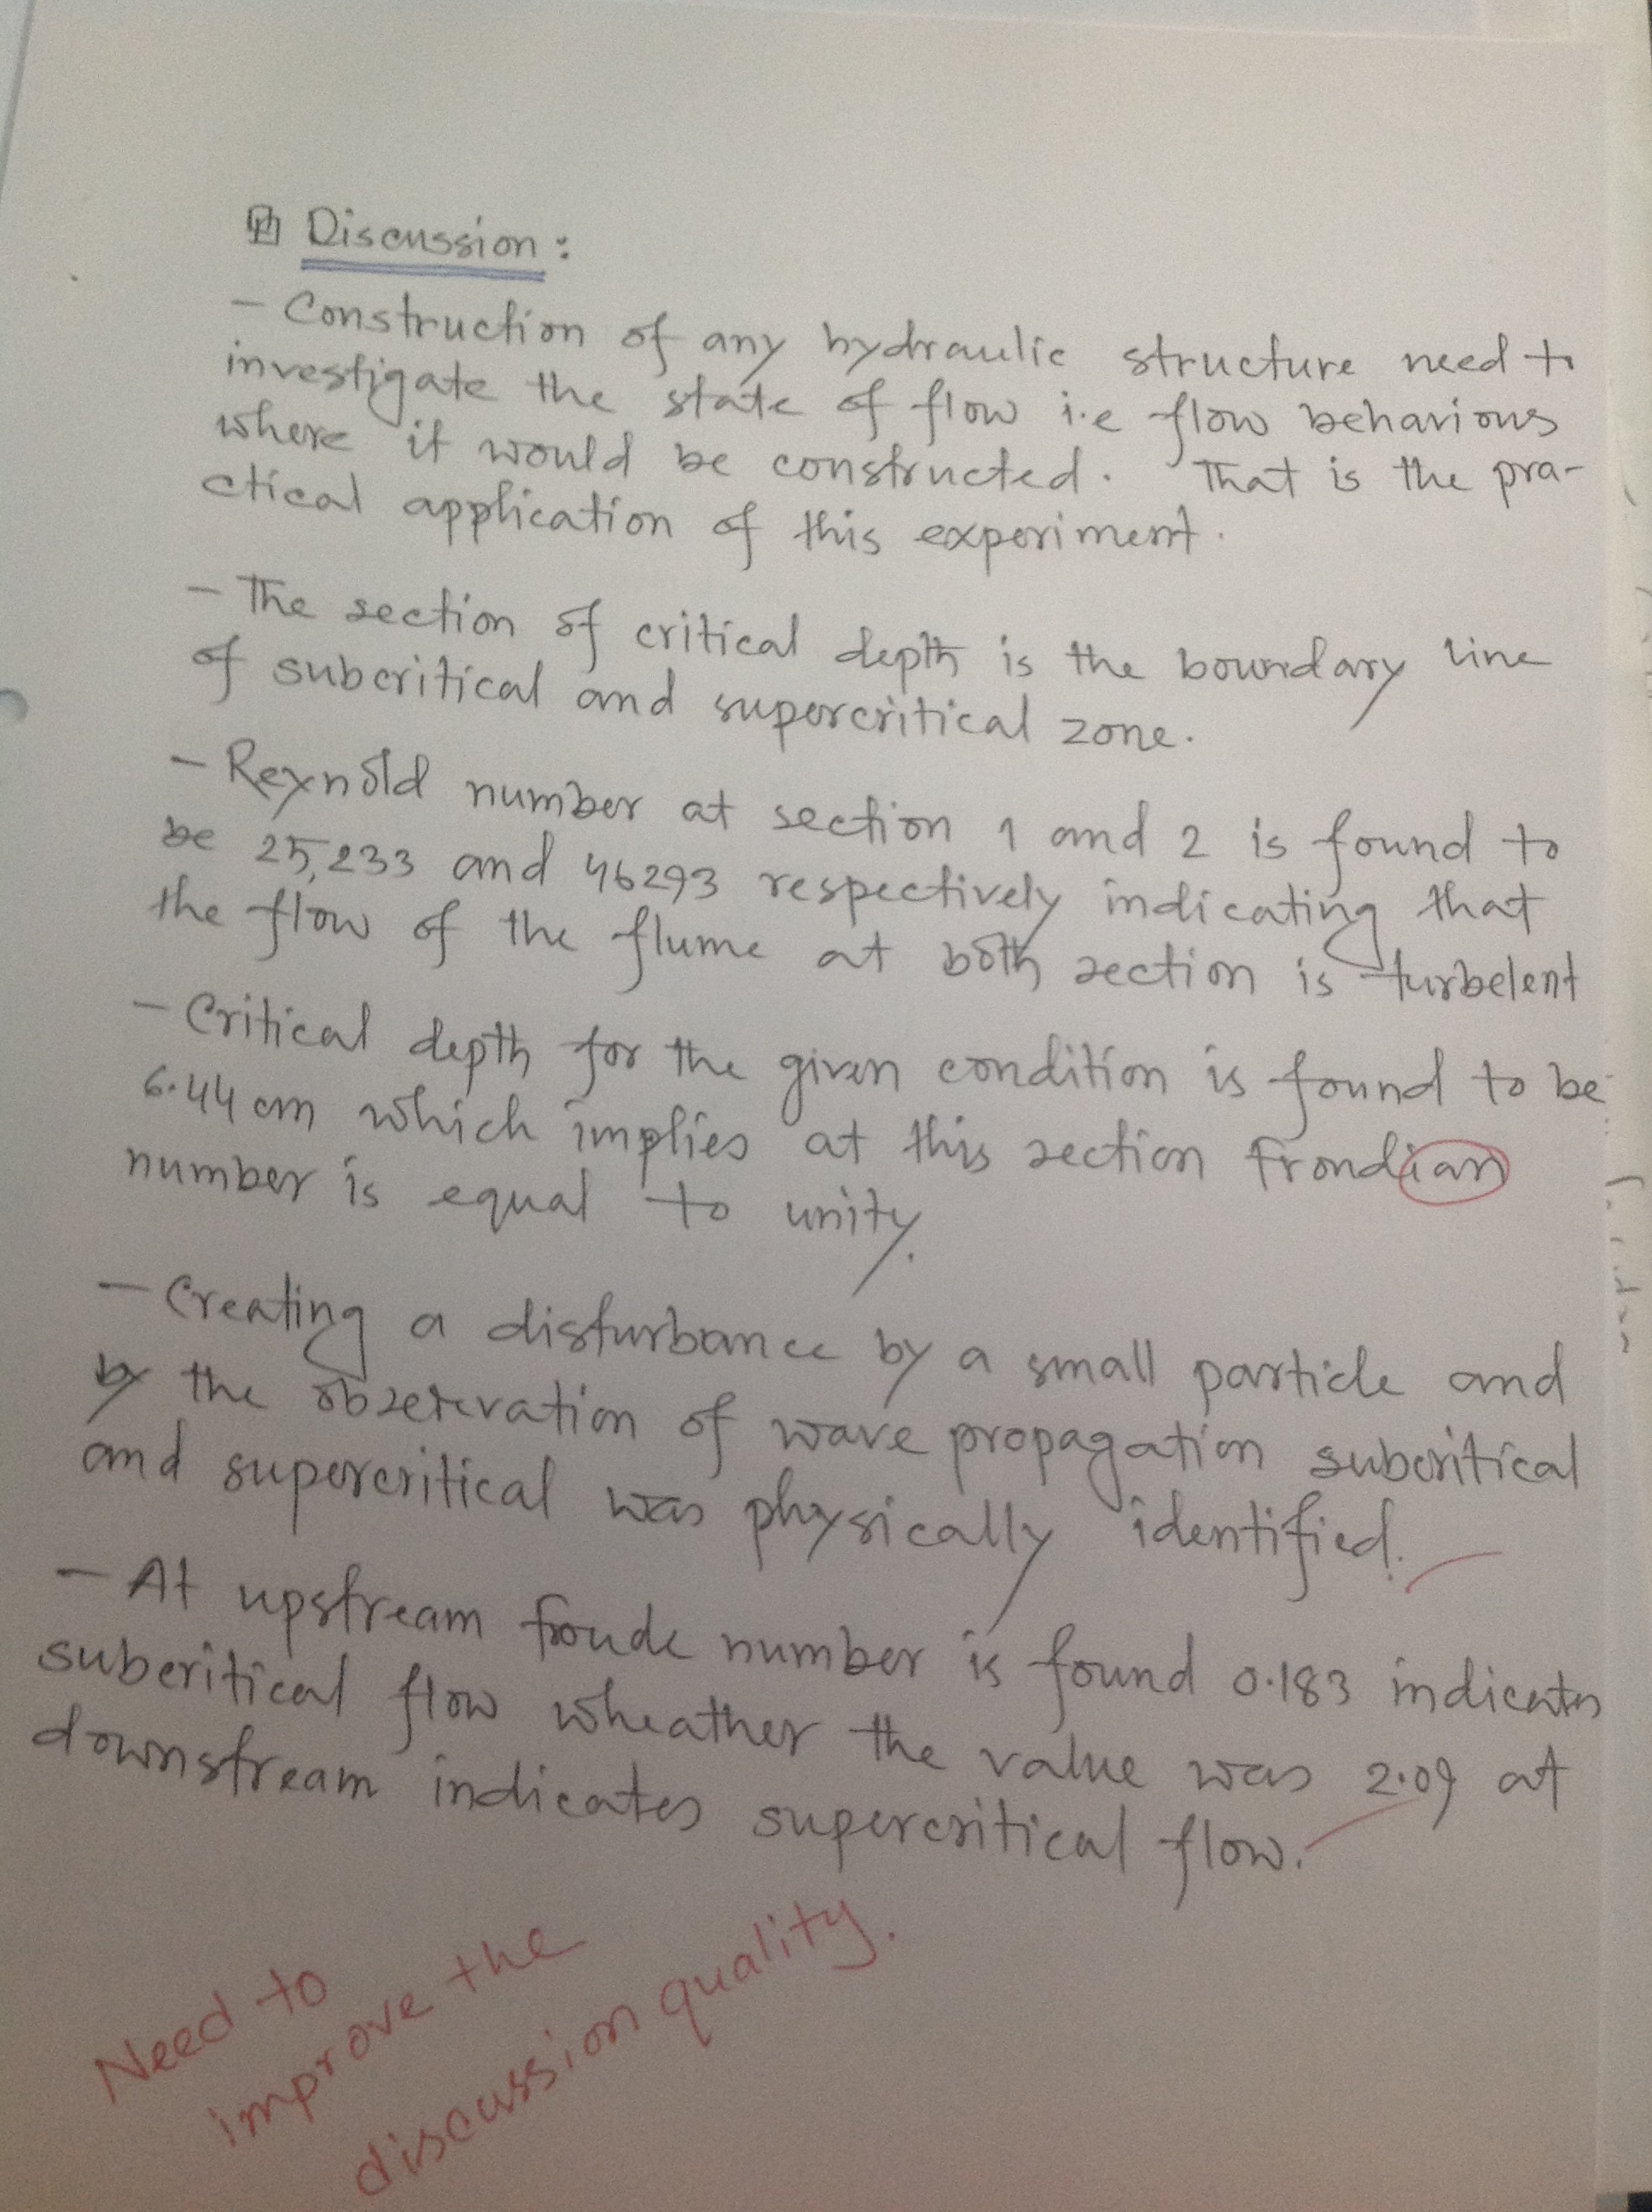 Discussion:
- Construction of any hydraulic structure need to
investigate the state of flow i.e flow behavious
where it would be constructed. That is the pra-
ctical application of this experiment.
- The section of critical depth is the boundary line
of subcritical and supercritical zone.
- Reynold number at section 1 and 2 is found to
be 25,233 and 46293 respectively indicating that
the flow of the flume at both section is turbelent
- Critical depth for the given condition is found to be
6.44 cm which implies at this section Froudian
number is equal to unity.
- Creating a disturbance by a small particle and
by the observation of wave propagation subcritical
and supercritical was physically identified.
- At upstream froude number is found 0.183 indicates
subcritical flow wheather the value was 2.09 at
downstream indicates supercritical flow.
Need to
improve the
discussion quality.